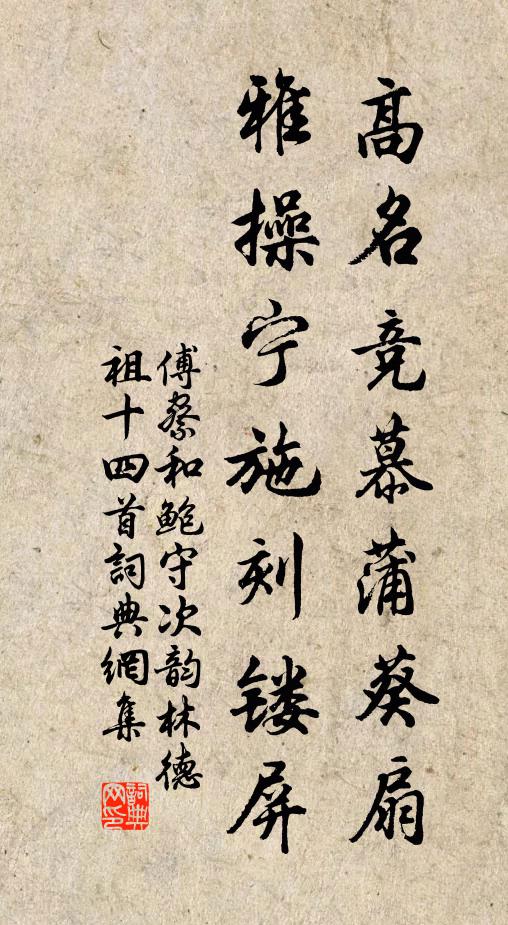 高名竞慕蒲葵扇
雅操宁施刻镂屏
傅察和鲍守次韵林德
祖十四首詞典網集
詞典
网印